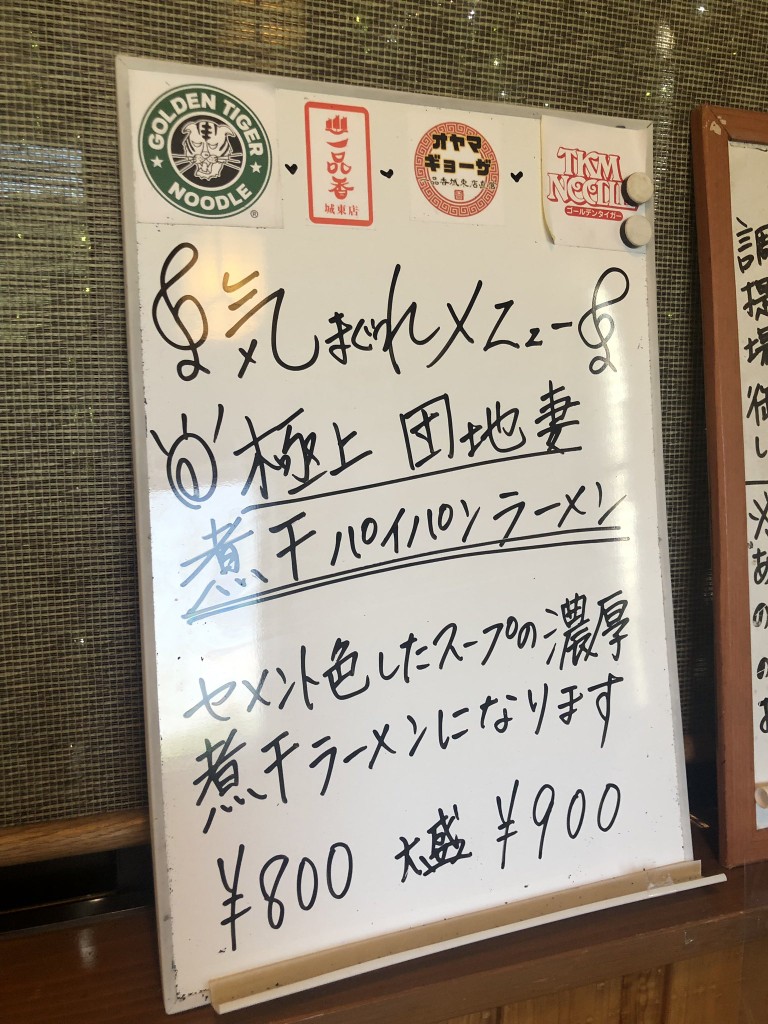 GOLDEN TIGER
NOODLE
®
一品香
城東店
オヤマ
ギョーザ
TKM
ゴールデンタイガー
気まぐれメニュー
極上 団地妻
煮干パイパンラーメン
セメント色したスープの濃厚
煮干ラーメンになります
¥800 大盛 ¥900